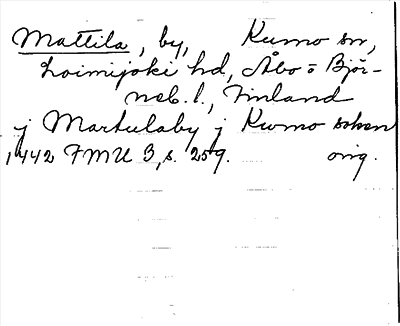 Mattila, by, Kumo sn,
Loimijoki hd, Åbo o Björ-
neb. l., Finland
j Martulaby j Kumo soken
1442 FMU 3, s. 259. orig.